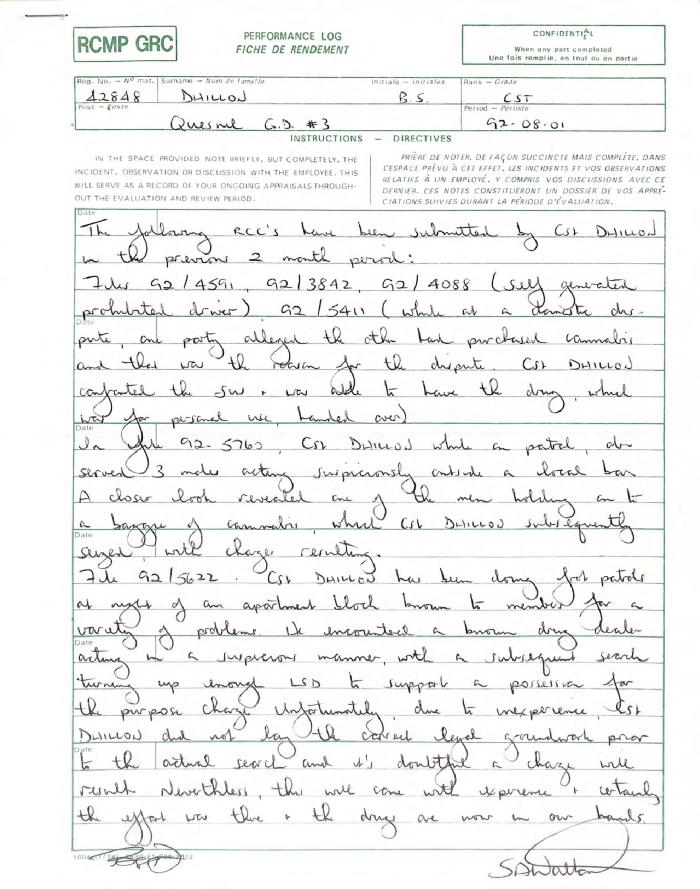 RCMP GRC
PERFORMANCE LOG
FICHE DE RENDEMENT
CONFIDENTIEL
When any part completed
Une fois remplie, en tout ou en partie
Reg. No. — Nº mat. Surname — Nom de famille Initials — Initiales Rank — Grade
42848 DHILLON B.S. CST
Post — Poste Period — Période
Quesnel G.D. #3 92-08-01
INSTRUCTIONS — DIRECTIVES
IN THE SPACE PROVIDED NOTE BRIEFLY, BUT COMPLETELY, THE
INCIDENT, OBSERVATION OR DISCUSSION WITH THE EMPLOYEE. THIS
WILL SERVE AS A RECORD OF YOUR ONGOING APPRAISALS THROUGH-
OUT THE EVALUATION AND REVIEW PERIOD.
PRIÈRE DE NOTER, DE FAÇON SUCCINCTE MAIS COMPLÈTE, DANS
L'ESPACE PRÉVU À CET EFFET, LES INCIDENTS ET VOS OBSERVATIONS
RELATIFS À UN EMPLOYÉ, Y COMPRIS VOS DISCUSSIONS AVEC CE
DERNIER. CES NOTES CONSTITUERONT UN DOSSIER DE VOS APPRÉ-
CIATIONS SUIVIES DURANT LA PÉRIODE D'ÉVALUATION.
Date
The following RCC's have been submitted by Cst DHILLON
in the previous 2 month period:
Files 92/4591, 92/3842, 92/4088 (self generated
prohibited driver) 92/5411 (while at a domestic dis-
Date
pute, one party alleged the other had purchased cannabis
and that was the reason for the dispute. Cst DHILLON
confronted the sus + was able to have the drug, which
was for personal use, handed over)
Date
In file 92-5760, Cst DHILLON while on patrol, ob-
served 3 males acting suspiciously outside a local bar.
A closer look revealed one of the men holding on to
a baggie of cannabis, which Cst DHILLON subsequently
Date
seized, with charges resulting.
File 92/5622. Cst DHILLON has been doing foot patrols
at night of an apartment block known to members for a
variety of problems. He encountered a known drug dealer
Date
acting in a suspicious manner, with a subsequent search
turning up enough LSD to support a possession for
the purpose charge. Unfortunately, due to inexperience, Cst
DHILLON did not lay the correct legal groundwork prior
Date
to the actual search and it's doubtful a charge will
result. Nevertheless, this will come with experience + certainly
the effort was there + the drugs are now in our hands.
SAWalton